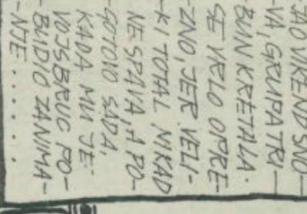 -VA, GRUPA TRI-
BUN KRETALA.
SE VRLO OPRE-
-ZNO, JER VELI-
-KI TOTAL NIKAD
NE SPAVA, A PO-
-GOTOVO SADA,
KADA MU JE
VOJSBRUC PO-
-BUDIO ZANIMA-
-NJE......